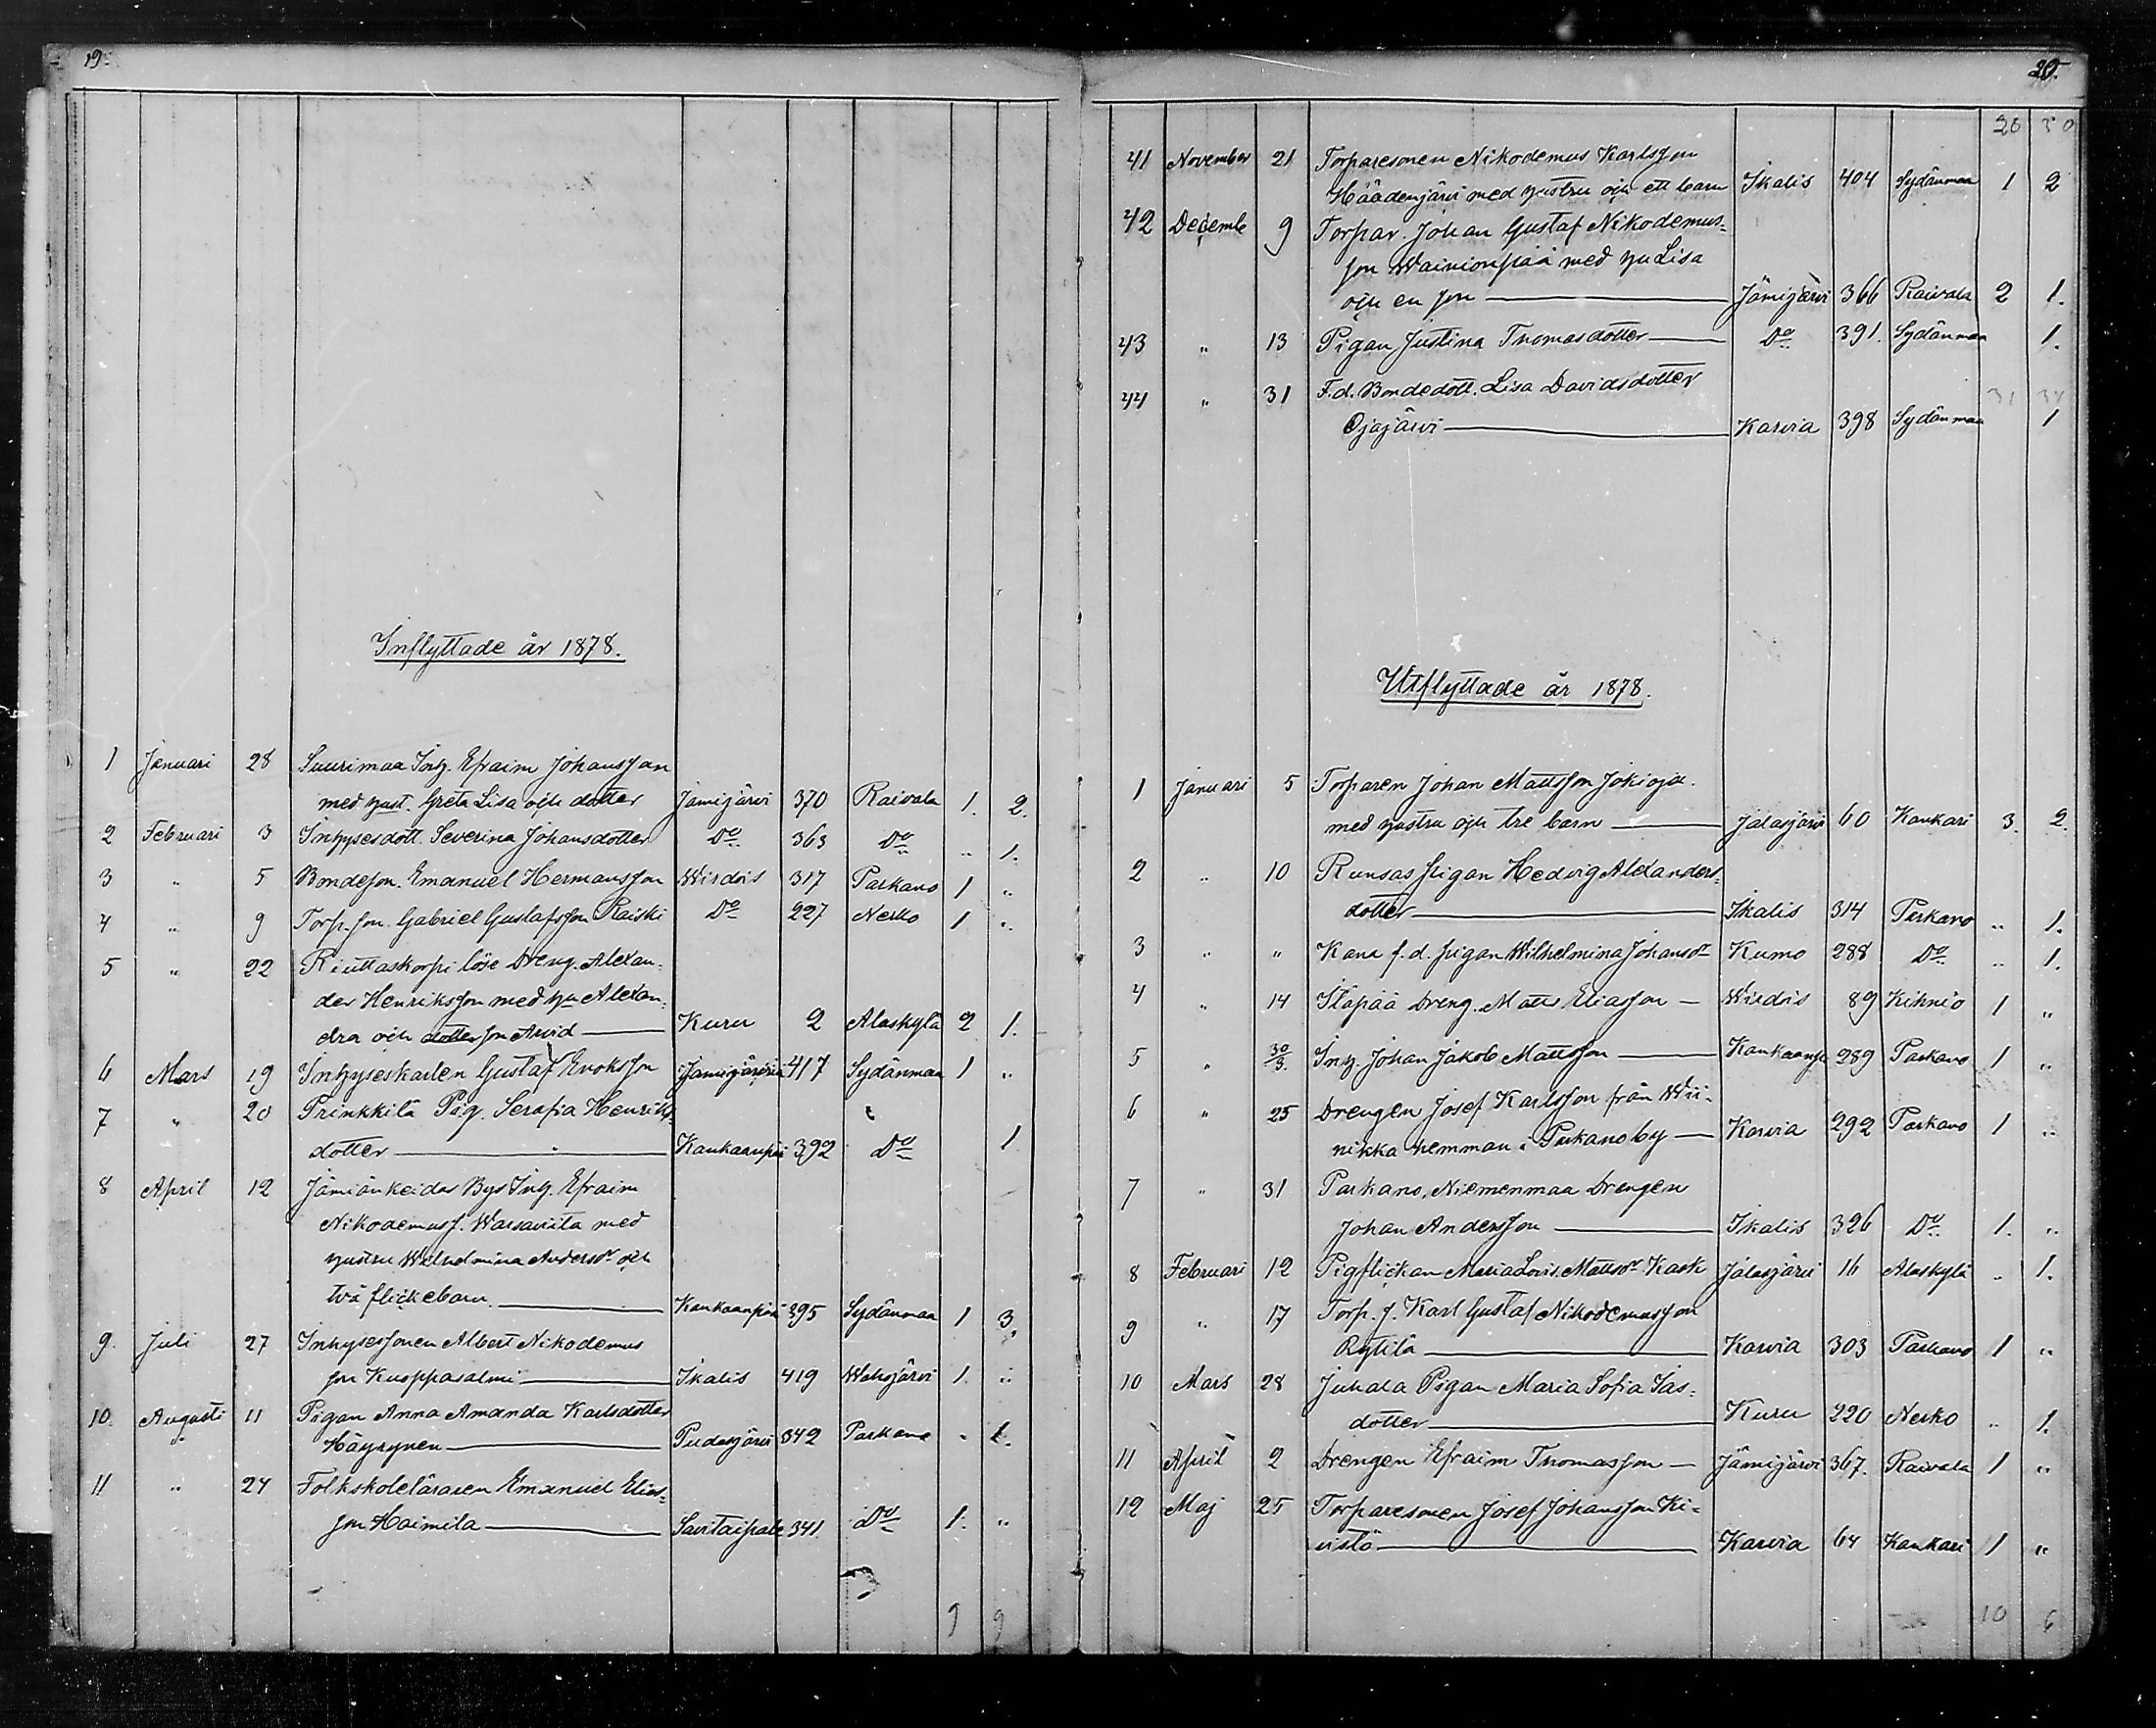 19.
Inflyttade år 1878.
1 Januari 28 Suurimaa Inh. Efraim Johansson
med hust. Greta Lisa och dotter Jämijärvi 370 Raivala 1. 2.
2 Februari 3 Inhysesdott. Severina Johansdotter Do 363 Do " 1.
3 " 5 Bondeson. Emanuel Hermansson Wirdois 317 Parkano 1 "
4 " 9 Torp. son. Gabriel Gustafsson Raiski Do 227 Nerko 1 "
5 " 22 Riuttaskorpi löse Dreng. Alexan-
der Henriksson med hu Alexan-
dra och dotter son Arvid Kuru 2 Alaskylä 2 1.
6 Mars 19 Inhyseskarlen Gustaf Enoksson Jämijärvi 417 Sydänmaa 1 "
7 " 20 Prinkkilä Pig. Serafia Henriks-
dotter Kankaanpää 392 Do 1
8 April 12 Jämiänkeidas Bys Inh. Efraim
Nikodemuss. Warsavirta med
hustru Wilhelmina Andersdr och
två flickebarn. Kankaanpää 395 Sydänmaa 1 3.
9. Juli 27 Inhysessonen Albert Nikodemus
son Kuoppasalmi Ikalis 419 Wahojärvi 1. "
10. Augusti 11 Pigan Anna Amanda Karlsdotter
Häyrynen Pudasjärvi 342 Parkano " 1.
11 " 24 Folkskoleläraren Emanuel Elias-
son Haimila Savitaipale 341. Do 1. "
9 9
20.
26 30
41 November 21 Torparesonen Nikodemus Karlsson
Häädenjärvi med hustru och ett barn Ikalis 404 Sydänmaa 1 2
42 Decembe 9 Torpar. Johan Gustaf Nikodemus-
son Wainionpää med hu Lisa
och en son Jämijärvi 366 Raivala 2 1.
43 " 13 Pigan Justina Thomasdotter Do 391. Sydänmaa 1.
44 " 31 F.d. Bondedott. Lisa Davidsdotter 31 34
Ojajärvi Karvia 398 Sydänmaa 1
Utflyttade år 1878.
1 Januari 5 Torparen Johan Mattsson Jokioja.
med hustru och tre barn Jalasjärvi 60 Kankari 3. 2.
2 " 10 Runsas pigan Hedvig Alexanders-
dotter Ikalis 314 Parkano " 1.
3 " " Kana f.d. pigan Wilhelmina Johansdr Kumo 288 Do " 1.
4 " 14 Yläpää Dreng. Matts Eliasson Wirdois 89 Kihniö 1 "
5 " 30/3. Inh. Johan Jakob Mattsson Kankaanpä 289 Parkano 1 "
6 " 25 Drengen Josef Karlsson från Wii-
nikka hemman i Parkano by Karvia 292 Parkano 1 "
7 " 31 Parkano, Niemenmaa Drengen
Johan Andersson Ikalis 326 Do 1. "
8 Februari 12 Pigflickan Maria Lovis. Mattsdr Kask Jalasjärvi 16 Alaskylä " 1.
9 " 17 Torp. s. Karl Gustaf Nikodemusson
Rytilä Karvia 303 Parkano 1 "
10 Mars 28 Juhala Pigan Maria Sofia Isas-
dotter Kuru 220 Nerko " 1.
11 April 2 Drengen Efraim Thomasson Jämijärvi 367. Raivala 1 "
12 Maj 25 Torparesonen Josef Johansson Ki-
vistö Karvia 64 Kankari 1 "
10 6